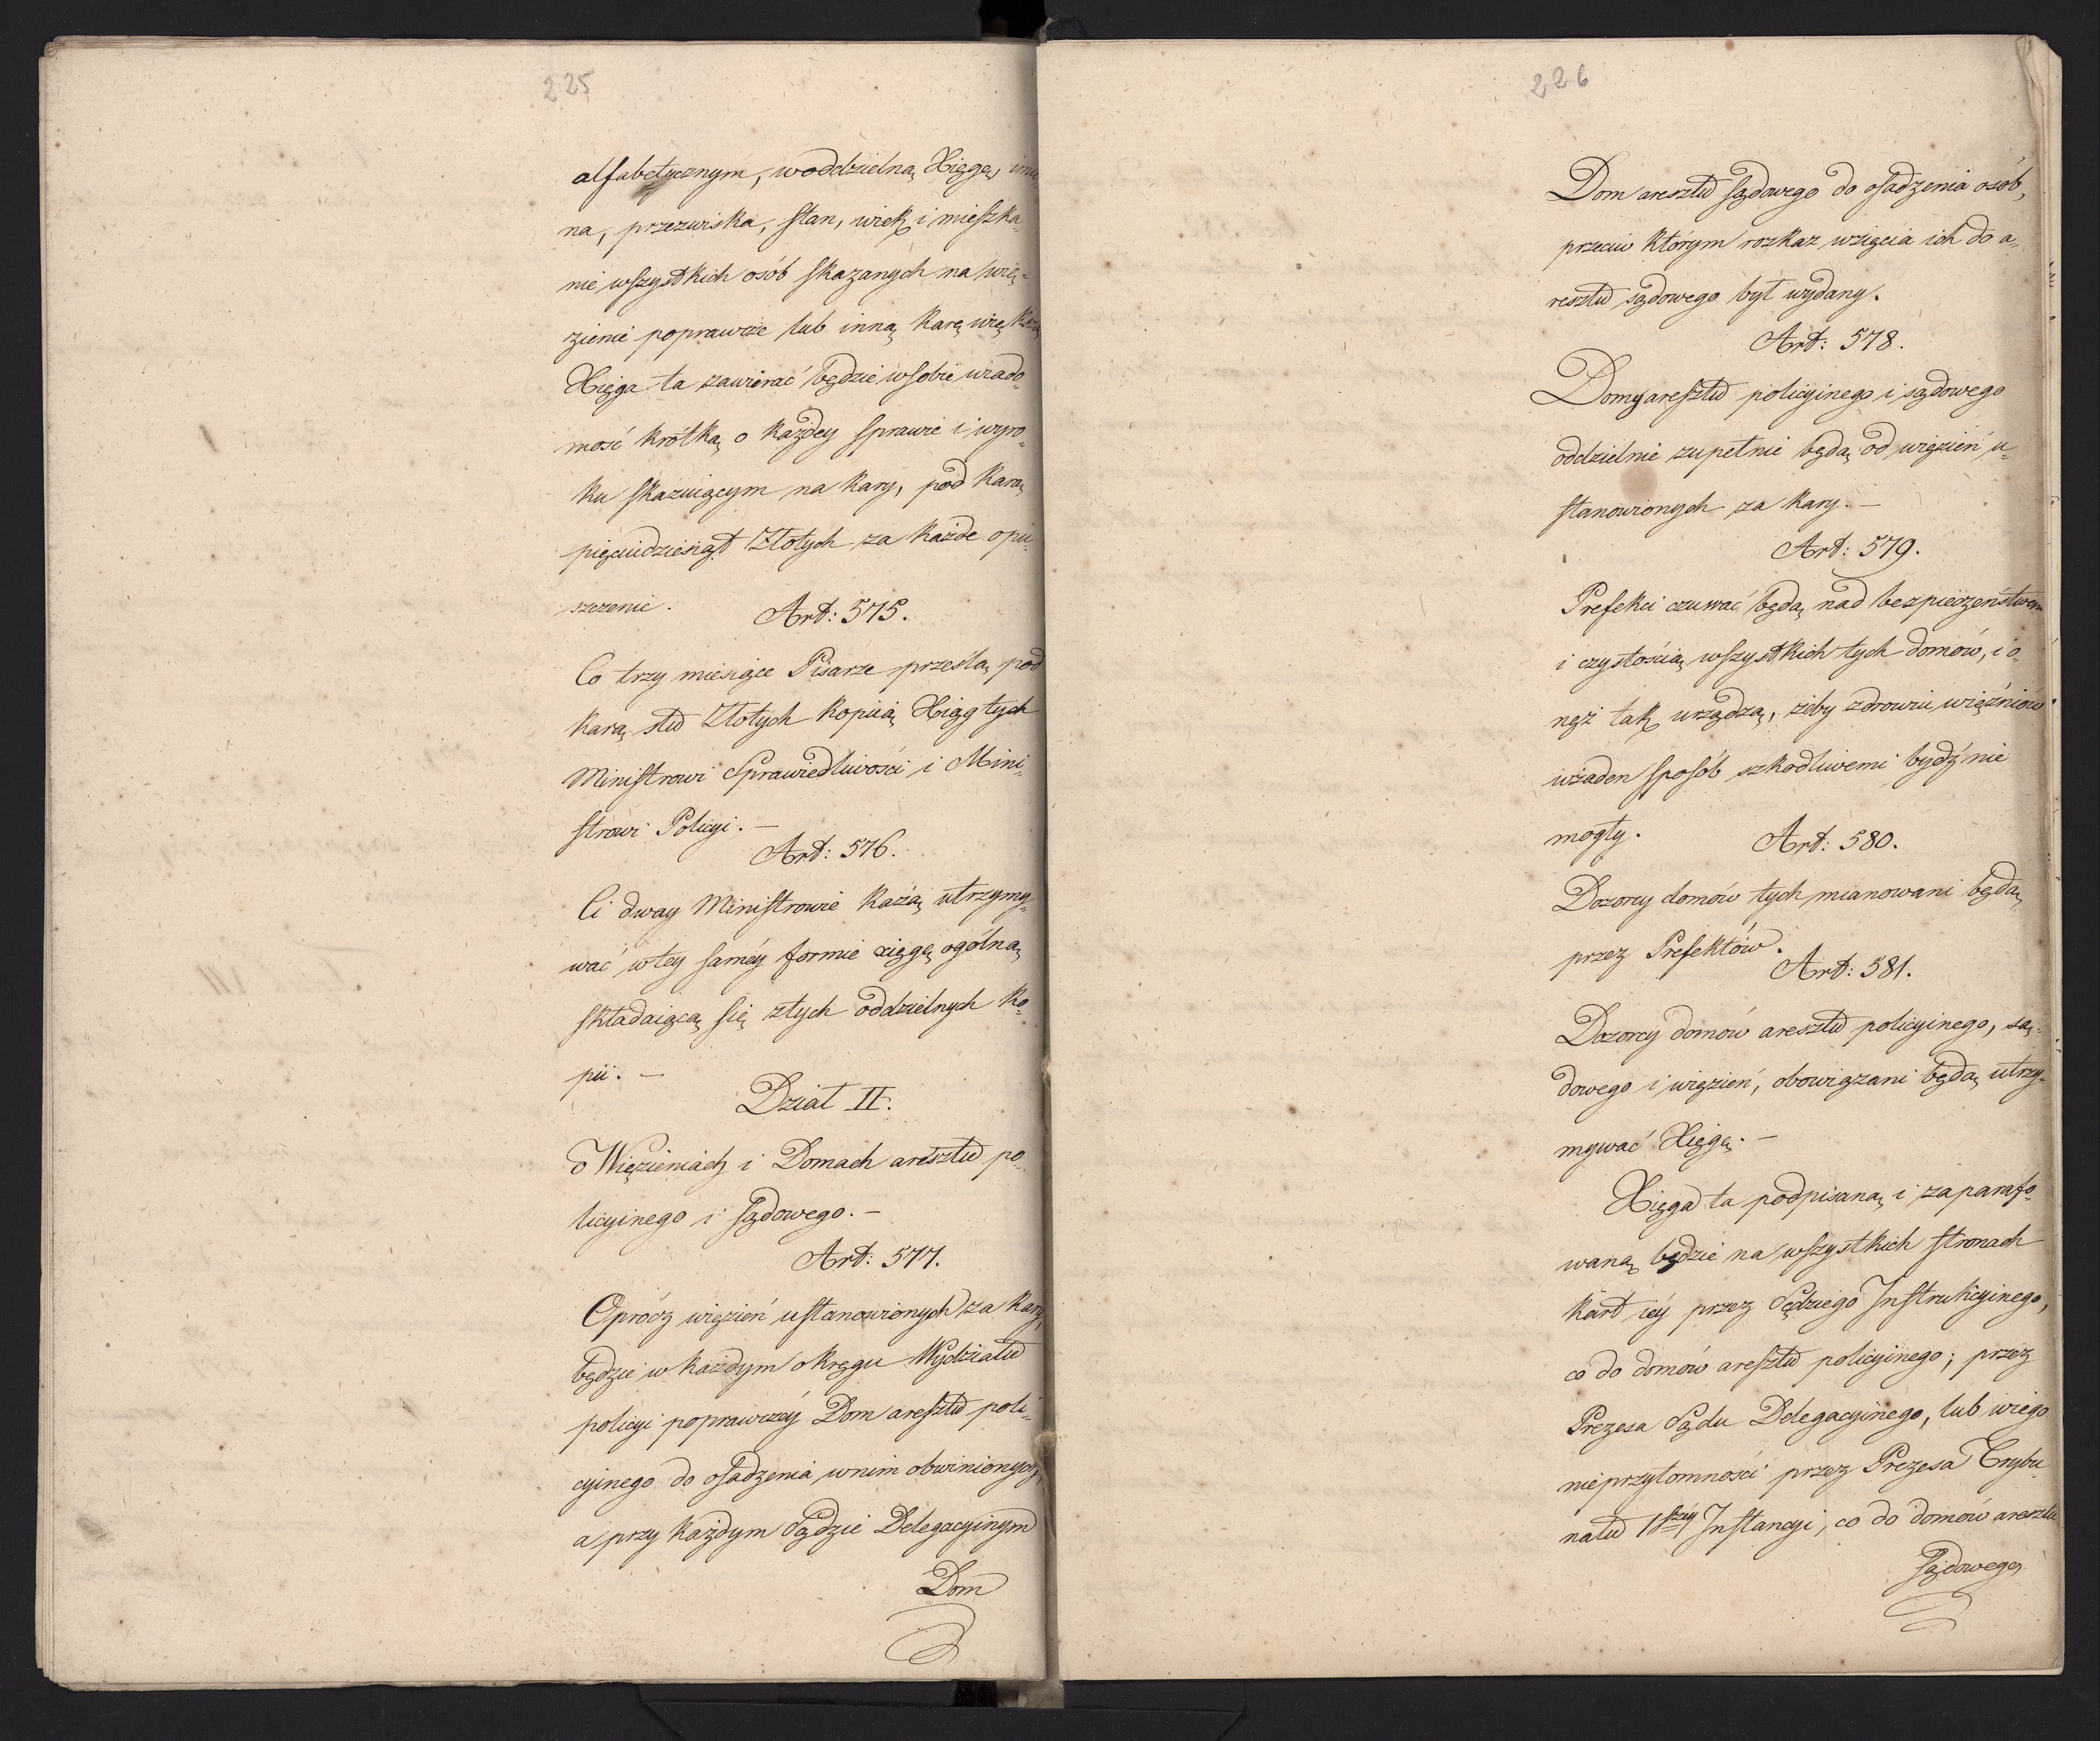 225
alfabetycznym, w oddzielną Xięgę, imio„
na, przezwiska, stan, wiek i mieszka„
nie wszystkich osób skazanych na wię„
zienie poprawcze lub inną karę większą
Xięga ta zawierać będzie w sobie wiado„
mość krótką o każdey sprawie i wyro„
ku skazuiącym na kary, pod karą
pięciudziesiąt Złotych za każde opu„
szczenie.
Art: 575.
Co trzy miesiące Pisarze prześlą pod
karą stu Złotych kopiią Xiąg tych
Ministrowi Sprawiedliwości i Mini„
strowi Policyi. —
Art: 576.
Ci dway Ministrowie każą utrzymy„
wać w tey saméy formie xięgę ogólną
składaiącą się z tych oddzielnych ko„
pii. —
Dział II.
O Więzieniach i Domach aresztu po„
licyinego i sądowego. —
Art: 577.
Oprócz więzień ustanowionych za kary,
będzie w każdym okręgu Wydziału
policyi poprawczéy Dom aresztu poli„
cyinego do osadzenia w nim obwinionych,
a przy każdym Sądzie Delegacyinym
Dom
226
Dom aresztu sądowego do osadzenia osób,
przeciw którym rozkaz wzięcia ich do a„
resztu sądowego był wydany.
Art: 578.
Domy aresztu policyinego i sądowego
oddzielnie zupełnie będą od więzień u„
stanowionych za kary. —
Art: 579.
Prefekci czuwać będą nad bezpieczeństwem
i czystością wszystkich tych domów, i o„
neż tak urządzą, żeby zdrowiu więźniów
w żaden sposób szkodliwemi bydź nie
mogły.
Art: 580.
Dozorcy domów tych mianowani będą
przez Prefektów.
Art: 581.
Dozorcy domów aresztu policyinego, są„
dowego i więzień, obowiązani będą utrzy„
mywać Xięgę. —
Xięga ta podpisaną i zaparafo„
waną będzie na wszystkich stronach
kart iéy przez Sędziego Instrukcyinego,
co do domów aresztu policyinego; przez
Prezesa Sądu Delegacyinego, lub w iego
nieprzytomności przez Prezesa Trybu„
nału 1széy Instancyi, co do domów aresztu
sądowego